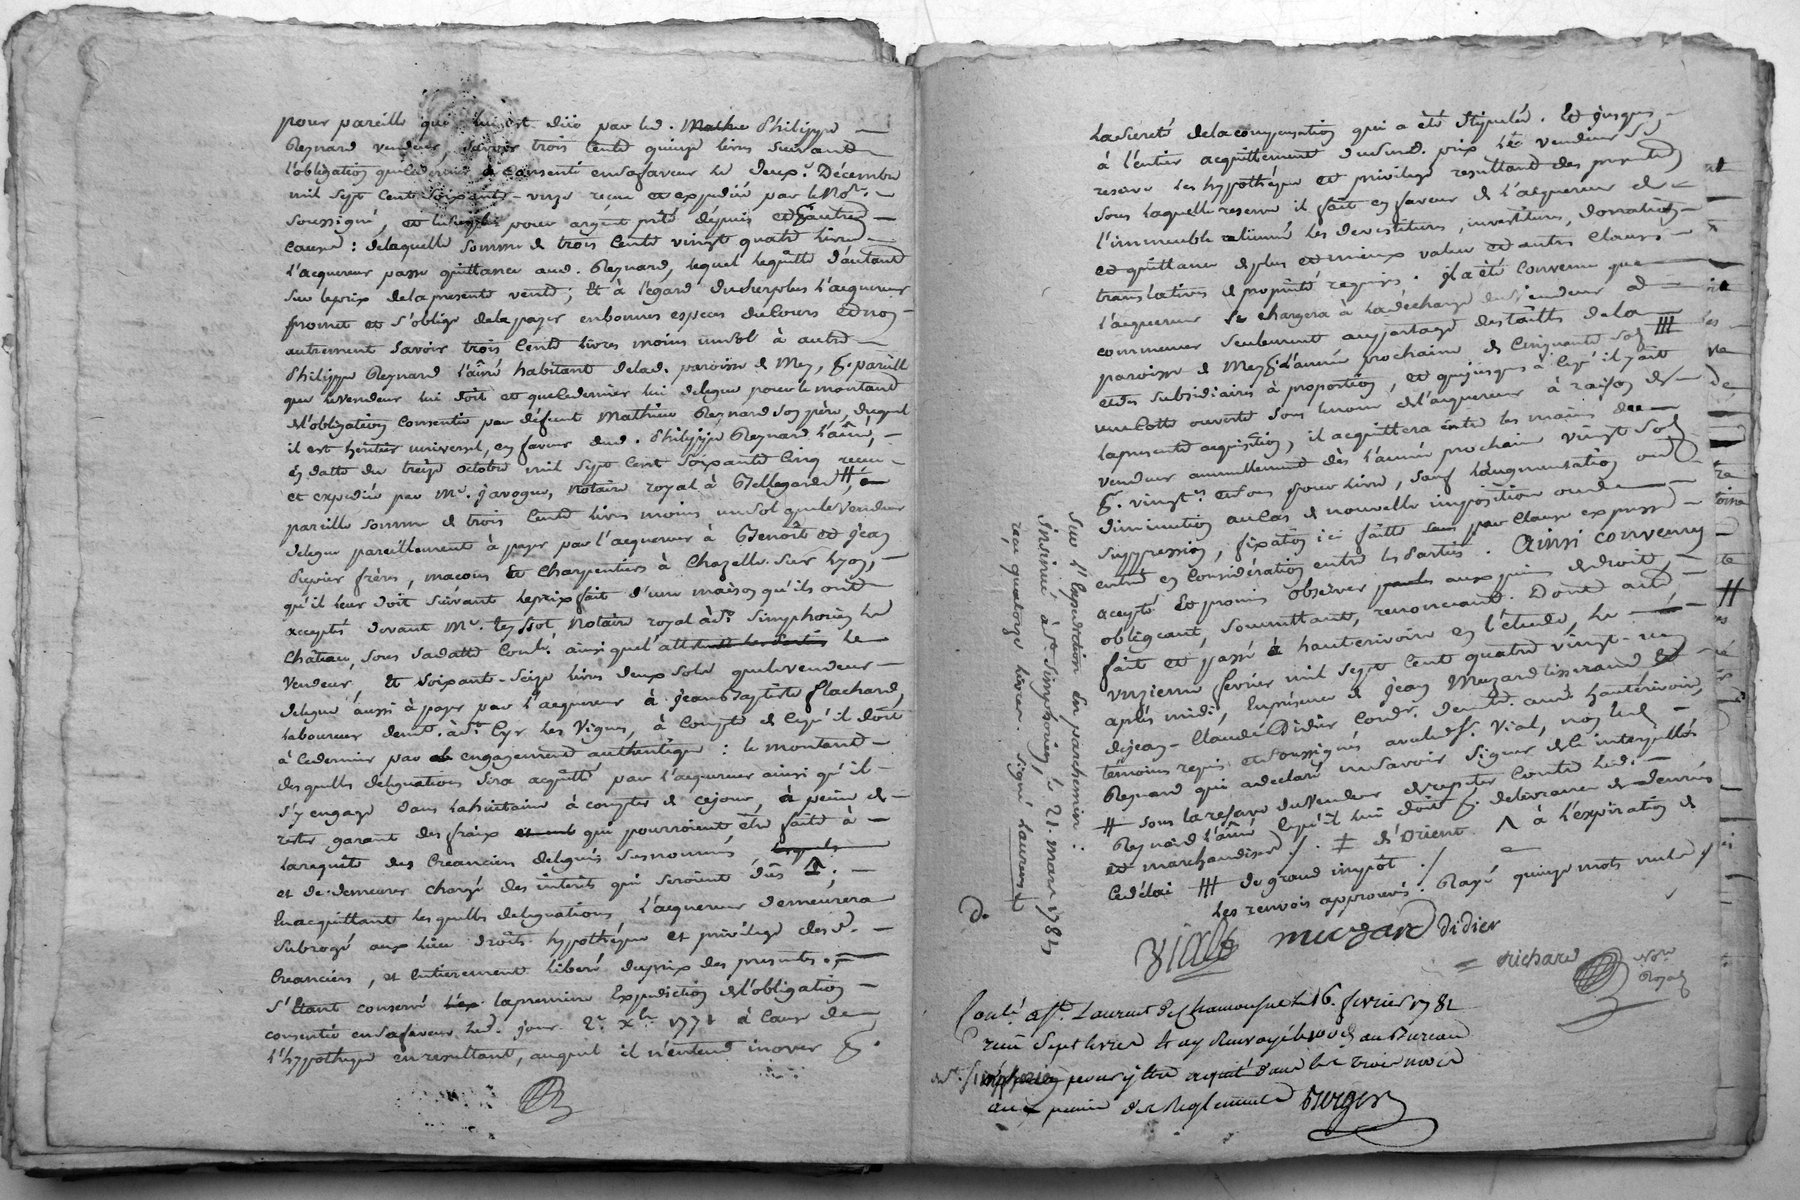 pour pareille qui lui est düe par led. Mathie Philippe
Reynard vendeur, savoir trois cents quinze livres suivant
l'obligation que le dernier a consenti en sa faveur le deux.e Décembre
mil sept cent soixante-onze recue et expediée par le No.re
soussigné, et le surplus pour argent prêté depuis et autres
causes : de laquelle somme de trois cents vingt quatre livres
l'acquereur passe quittance aud. Reynard, lequel le quitte d'autant
sur le prix de la presente vente ; Et à l'égard du surplus l'acquereur
promet et s'oblige de le payer en bonnes especes du cours et non
autrement savoir trois cents livres moins un sol à autre
Philippe Reynard l'aîné habitant de lad. paroisse de Meys, p. pareille
que le vendeur lui doit et que ce dernier lui delegue pour le montant
de l'obligation consentie par défunt Mathieu Reynard son père, duquel
il est héritier universel, en faveur dud. Philippe Reynard l'aîné,
en datte du treize octobre mil sept cent soixante cinq recue
et expediée par M.e Javogue, notaire royal à Bellegarde #,
pareille somme de trois cents livres moins un sol que le vendeur
delegue pareillement à payer par l'acquereur à Benoît et Jean
frères, maçons et charpentiers à Chazelle sur Lyon,
qu'il leur doit suivant le prix fait d'une maison qu'ils ont
accepté devant M.e Teyssot Notaire royal à St. Simphorien le
Château, sous sa datte Contlé. ainsi que l'attestent les Parties le
Vendeur, Et soixante-seize livres deux sols que le vendeur
delegue aussi à payer par l'acquereur à Jean Baptiste Flachard,
laboureur demt. à St. Cyr les Vignes, à compte de ce qu'il doit
à ce dernier par engagement authentique : le montant
des quelles delegations sera acquitté par l'acquereur ainsi qu'il
s'y engage dans la huitaine à compter de ce jour, à peine de
rester garant des fraix qui pourroient être faits à
la requête des Creanciers delegués susnommés
et de demeurer chargé des interêts qui seroient dûs ;
En acquittant les quelles delegations, l'acquereur demeurera
subrogé aux lieu droits hypothéque et privilege des d.
Creanciers, et entierement liberé du prix des presentes.
S'étant conservé la premiere Expedition de l'obligation
consentie en sa faveur led. jour 2.e Xbre 1771 à cause de
l'hypotheque en resultant, auquel il n'entend inover p.
la sureté de la compensation qui a été stipulée. Et jusques
à l'entier acquittement du susd. prix le vendeur se
reserve les hypothéque et privilege resultant des presentes
sous laquelle reserve il fait en faveur de l'acquereur de
l'immeuble alienné les devestitures, investitures, donation
et quittance de plus et mieux value et autres clauses
translatives de propriété requises. Il a été convenu que
l'acquereur se chargera à la décharge du Vendeur à
commencer seulement au partage des tailles de la
paroisse de Meys de l'année prochaine de cinquante sols #
et des subsidiaires à proportion, et que jusques à ce qu'il y ait
une cotte ouverte sous le nom de l'acquereur à raison de
la presente acquisition, il acquittera entre les mains du
vendeur annuellement dès l'année prochaine vingt sols
p. vingt.e et sou pour livre, sauf l'augmentation ou
diminution au cas de nouvelle imposition ou de
suppression, fixation ici faitte par clause expresse
entré en considération entre les Parties. Ainsi convenu
accepté Et promis observer aux peines de droit,
obligeant, soumettant, renonceant. Dont acte
fait et passé à hauterivoire en l'étude, le
onzieme fevrier mil sept cent quatre vingt-un
après midi, En présence de Jean Muzard tisserand Et
de Jean-Claude Didier Cordr. demt. aud. hauterivoire,
témoins requis et soussignés avec led. Sr. Vial, non led.
Reynard qui a declaré ne savoir signer de ce interpellés
# sous la reserve du Vendeur de repeter contre led.
Reynard l'aîné ce qu'il lui doit p. delivrance de denrées
et marchandises /. ‡ de l'Orient Λ à l'expiration de
ce délai # de grand impôt /.
Les renvois approuvés. Rayé quinze mots nuls /
vial muzard didier
richard No.re Royal
Conlé. a St. Laurent de Chamousset le 16. fevrier 1781
recu sept livres et ay renvoyé le 100e d. au Bureau
de St. Simphorien pour y être acquité dans les trois mois
aux peines des Reglements Berger
Sur l'Expedition en parchemin :
insinué à St. Simphorien, le 21. mars 1781
reçu quatorze livres. signé Laurens
D.